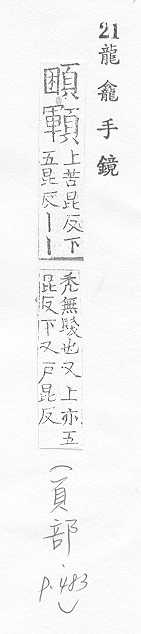 21 龍龕手鏡
顐
上苦昆反下
五昆反〡〡
秃無髮也又上亦五
昆反下又戶昆反
(頁部 p.483)